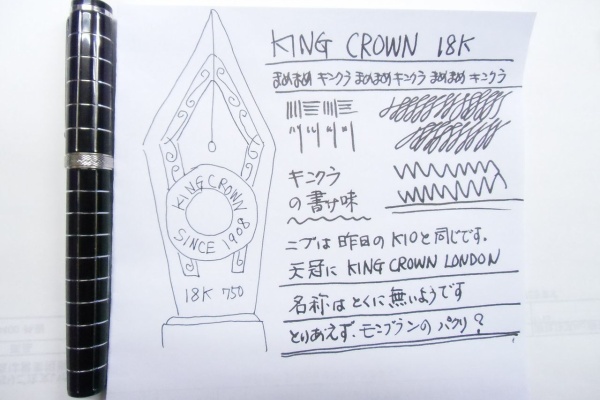 KING CROWN 18K
まめまめ キンクラ まめまめ キンクラ まめまめ キンクラ
キンクラ
の書き味
ニブは昨日のK10と同じです.
天冠に KING CROWN LONDON
名称はとくに無いようです
とりあえず、モンブランの パクリ?
KING CROWN
SINCE 1908
18K 750